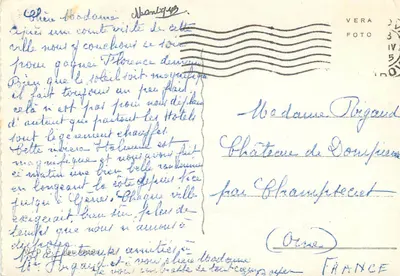 Chère Madame
Après une courte visite de cette
ville nous y couchons ce soir
pour gagner Florence demain
Bien que le soleil soit magnifique
il fait toujours un peu frais
cela n'est pas pour nous déplaire
d'autant que partout les Hotels
sont légèrement chauffés
Cette riviera Italienne est
magnifique et nous avons fait
ce matin une bien belle
en longeant la côte depuis
jusqu'à Gênes. Chaque ville
exigerait, bien sûr, plus de
temps que nous n'avons à
amitiés à
Mr Rigaud et
VERA
FOTO
Madame Rigaud
Château de Dompierre
par Champsecret
(Orne)
FRANCE